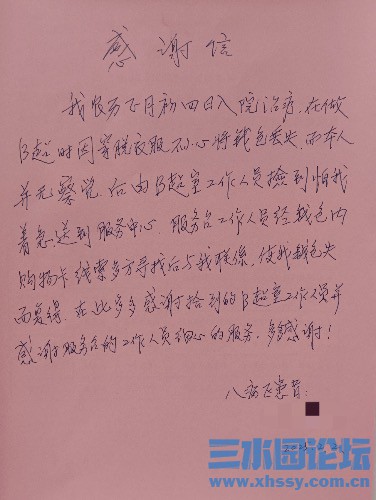 感谢信
我农历正月初四日入院治疗，在做
B超时因穿脱衣服不小心将钱包丢失，而本人
并无察觉，后由B超室工作人员捡到怕我
着急送到服务中心，服务台工作人员经钱包内
购物卡线索多方寻找后与我联系，使我钱包失
而复得，在此多多感谢捡到的B超室工作人员并
感谢服务台的工作人员细心的服务，多多感谢！
八病区患者：
三水园论坛
www.xhssy.com.cn